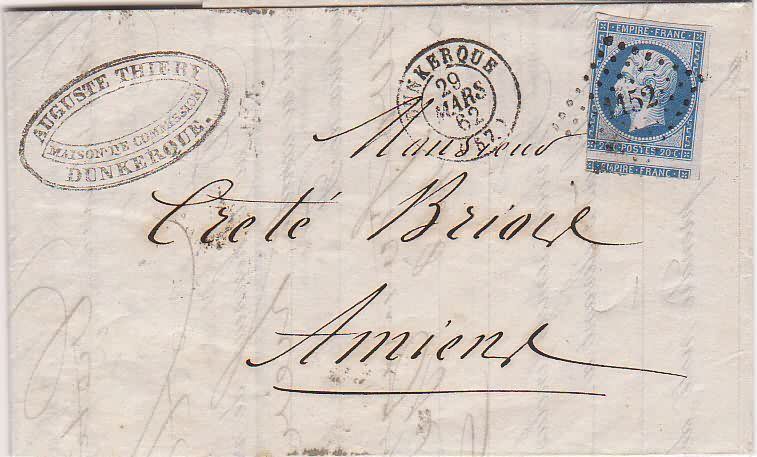 AUGUSTE THIERY
MAISON DE COMMISSION
DUNKERQUE.
DUNKERQUE
29
MARS
62
(57)
EMPIRE FRANC
1152
20c POSTES 20c
EMPIRE FRANC
Monsieur
Creté Brione
Amiens